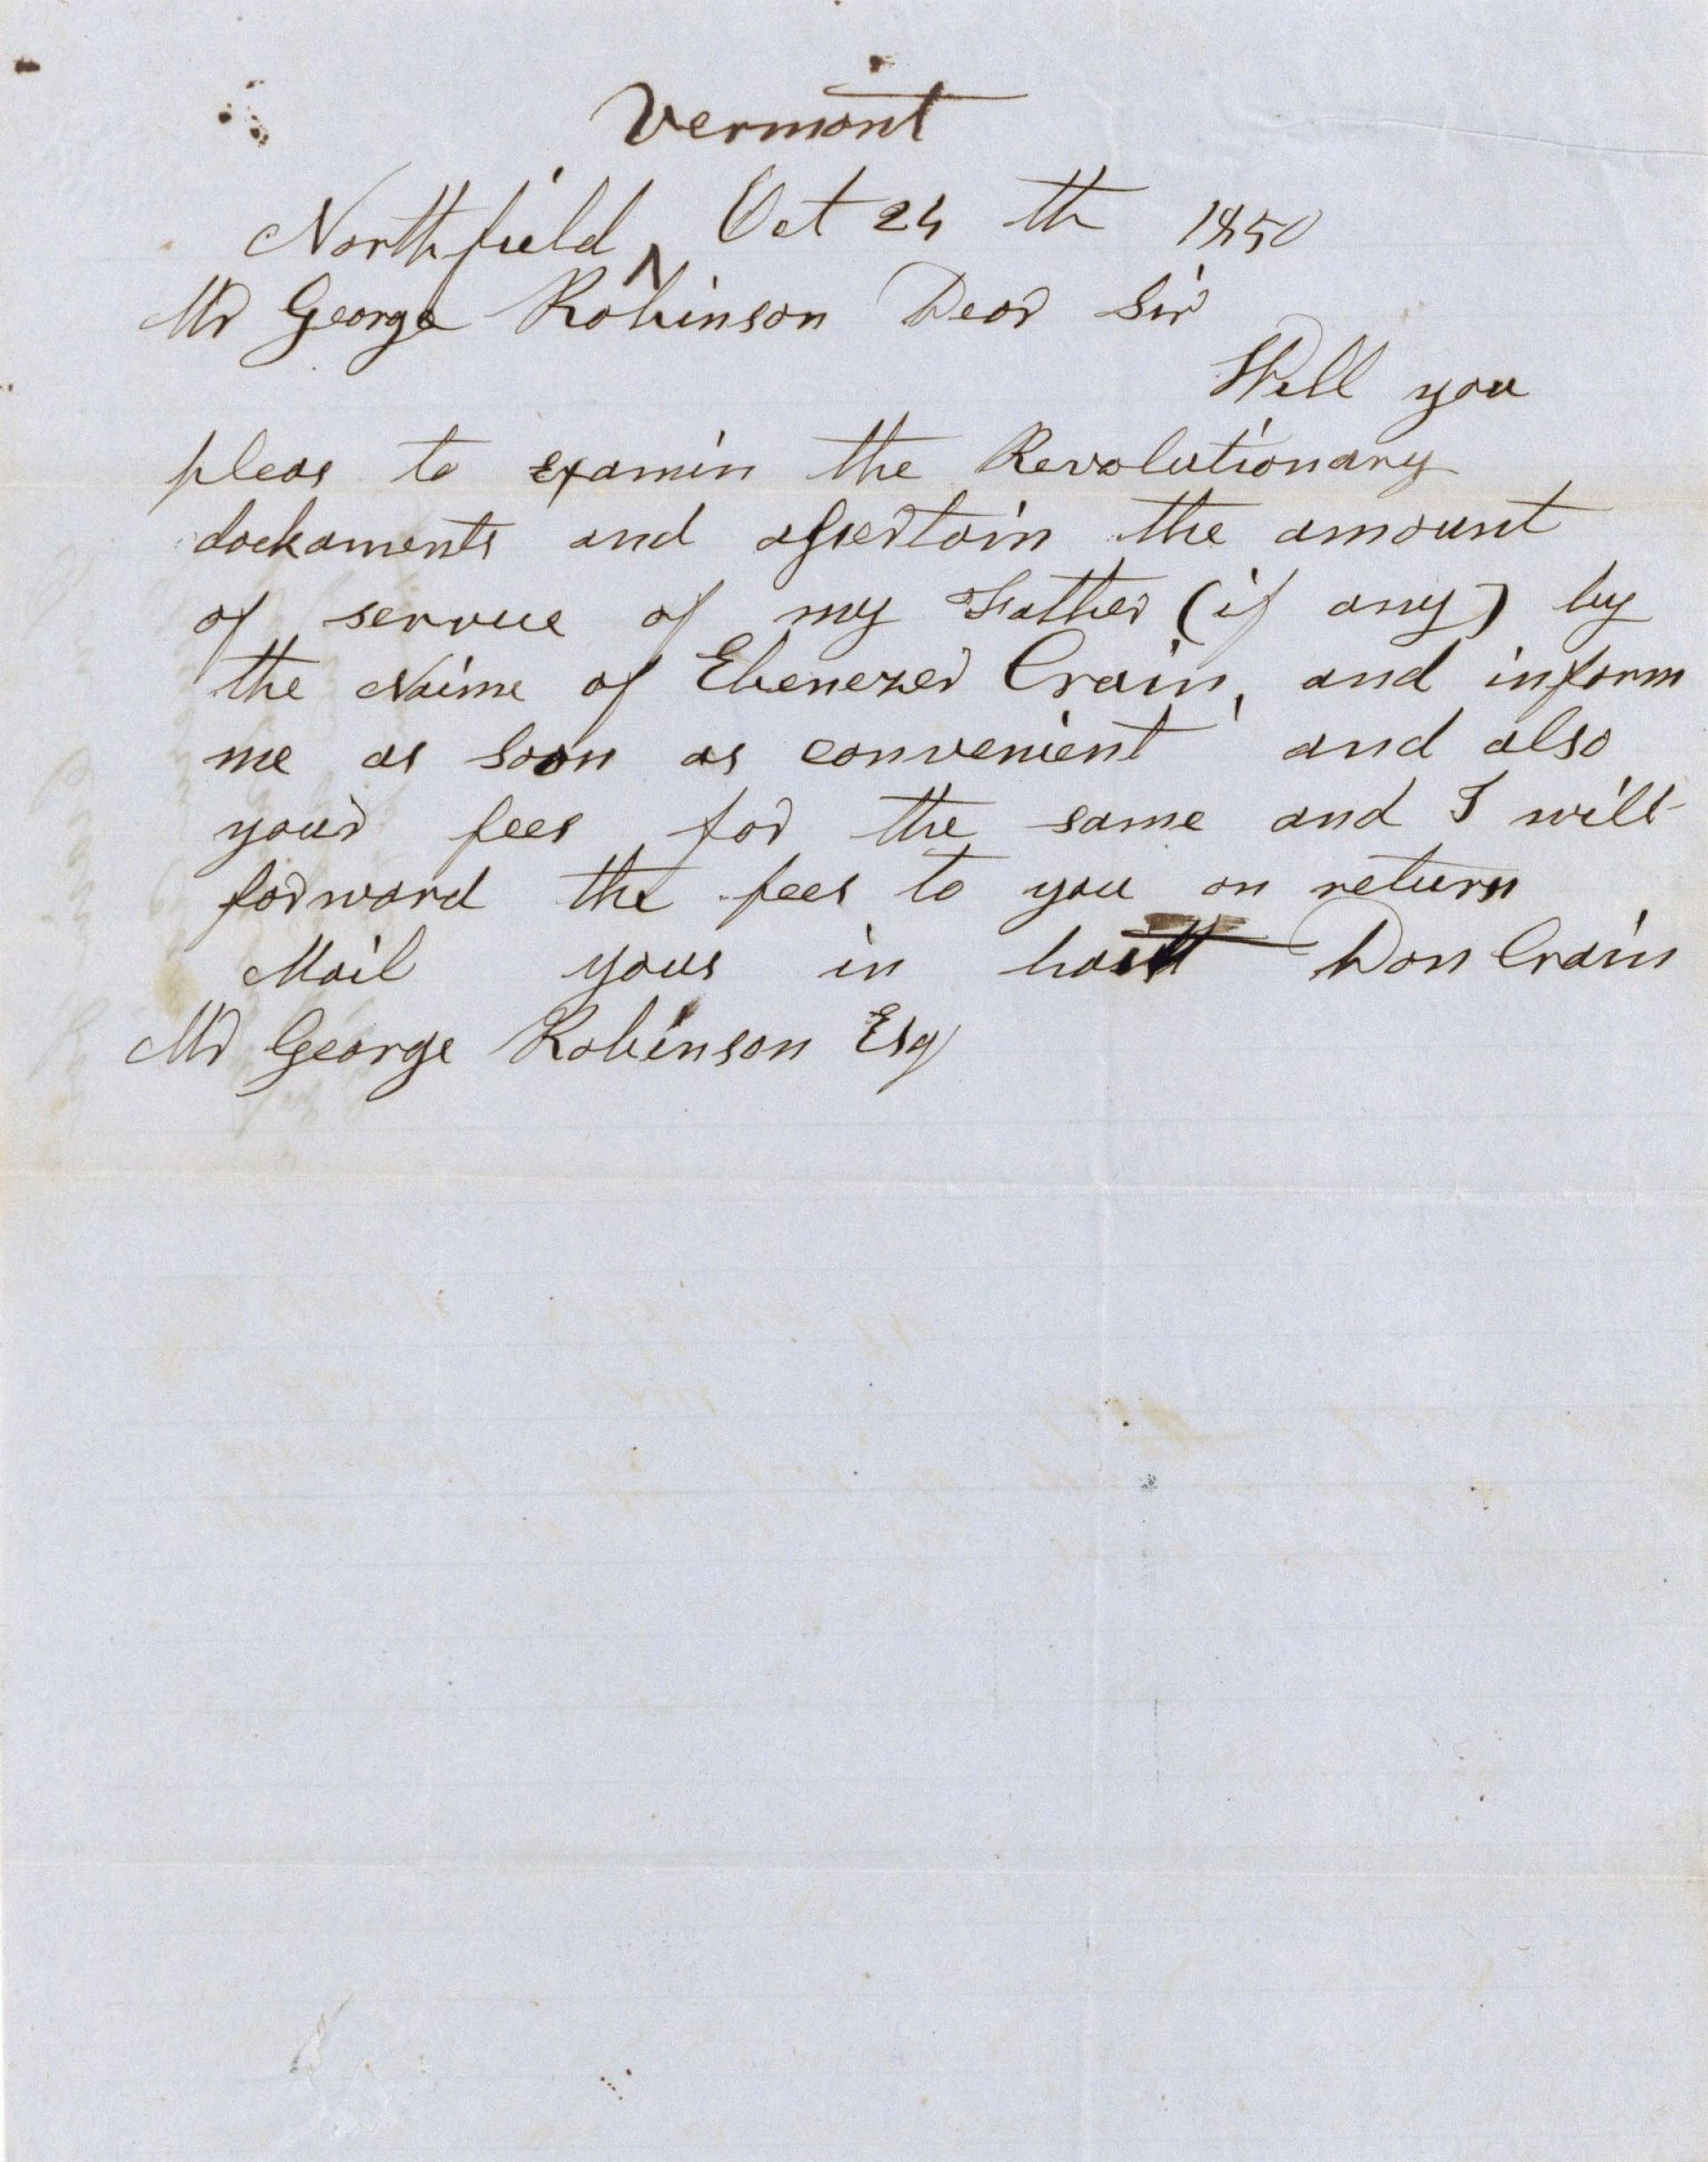 Vermont
Northfield ^ Oct 24 th 1850
Mr George Robinson Dear Sir
Will you
pleas to examin the Revolutionary
dockaments and assertain the amount
of service of my Father (if any) by
the Naime of Ebenezer Crain, and inform
me as soon as convenient and also
your fees for the same and I will
forward the fees to you on return
Mail yous in hast Don Crain
Mr George Robinson Esq